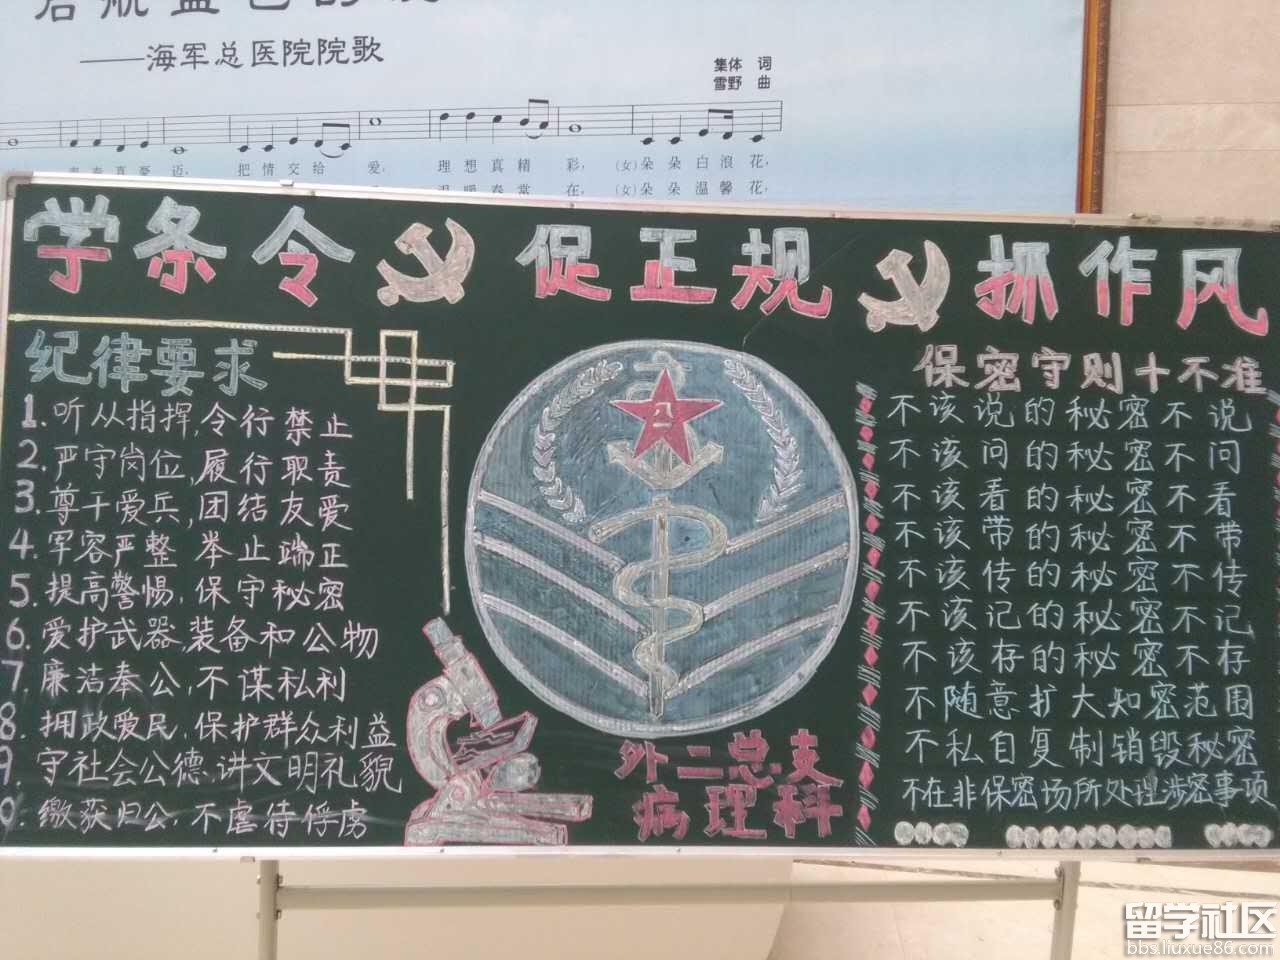 ——海军总医院院歌
集体 词
雪野 曲
迈, 把情交给 爱, 理想真精 彩, (女)朵朵白浪 花,
在, (女)朵朵温馨 花,
学条令 促正规 抓作风
纪律要求
1. 听从指挥,令行禁止
2. 严守岗位,履行职责
3. 尊干爱兵,团结友爱
4. 军容严整 举止端正
5. 提高警惕,保守秘密
6. 爱护武器,装备和公物
7. 廉洁奉公,不谋私利
8. 拥政爱民,保护群众利益
9. 守社会公德.讲文明礼貌
0. 缴获归公,不虐待俘虏
八一
外二总支
病理科
保密守则十不准
不该说的秘密不说
不该问的秘密不问
不该看的秘密不看
不该带的秘密不带
不该传的秘密不传
不该记的秘密不记
不该存的秘密不存
不随意扩大知密范围
不私自复制销毁秘密
不在非保密场所处理涉密事项
留学社区
bbs.liuxue86.com